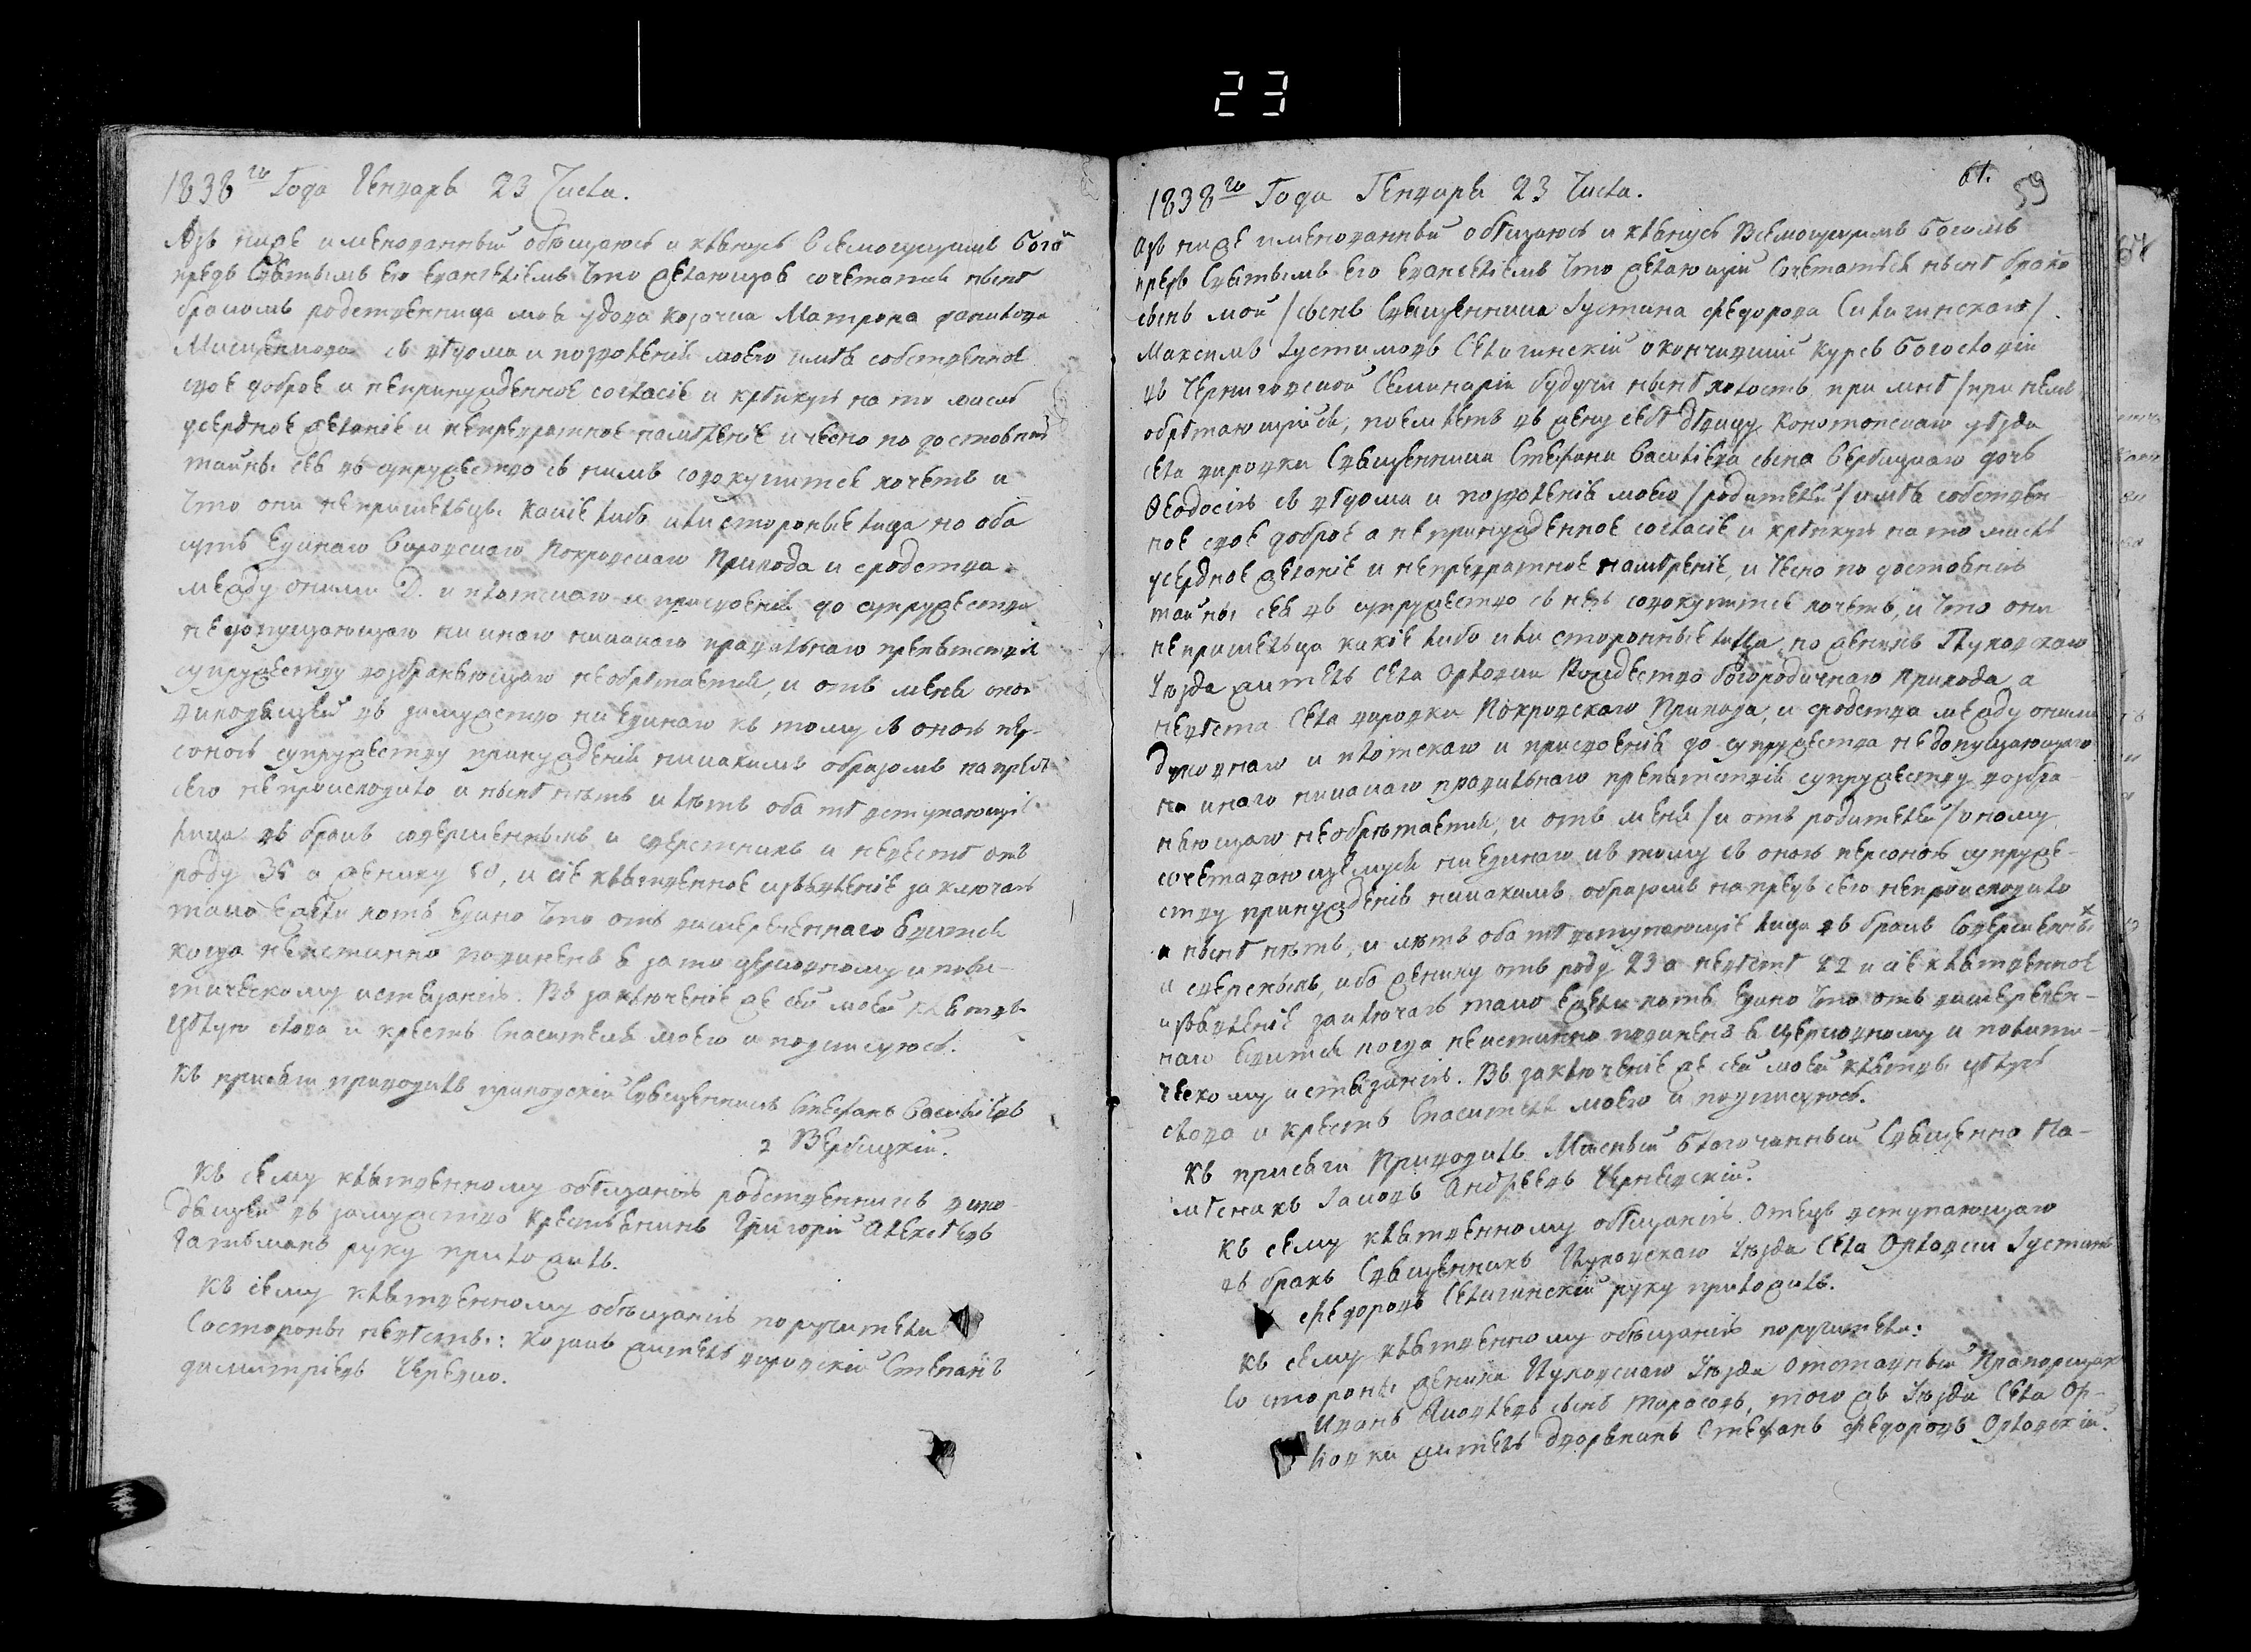 23
1838го Года Генваря 23 Числа.
Азъ ниже именованный обѣщаюсь и клянусь Всемогущимъ Бого
предъ Святымъ его Евангелiемъ Что желающая сочетатся нынѣ
бракомъ родственница моя удова козачка Матрона
съ вѣдома и позволенiя моего имѣя собственное
свое доброе и непринужденное согласiе и крѣпкую на то мысль
усердное желанiе и непревратное намѣренiе и ясно по достоянiю
тайны сея въ супружество съ нимъ совокупится хочетъ и
Что они непришельцы какiе либо или сторонные лица но оба
суть Единаго Вировскаго Покровскаго Прихода и сродства
между оними Д. и плотскаго и присвоенiя до супружества
недопущающаго ни инаго никакого правильнаго препятствiя
супружеству возбраняющаго необрѣтается, и отъ мене оной
виходящей въ замужство ниединаго къ тому съ оною пер-
соною супружеству принужденiя никакимъ образомъ напредъ
сего непроисходило и нынѣ нѣтъ и лѣтъ оба тѣ вступающiе
лица въ бракъ совершенныхъ и сверстныхъ и невестѣ отъ
роду 35 а жениху 50, и сiе клятвенное извѣщенiе заключаю
тако Ежели хотя Едино Что отъ вишереченнаго Явится
когда неистинно повиненъ я за то церковному и поли-
тическому истязанiю. Въ заключенiе же сей моей клятвы
Цѣлую слова и крестъ Спасителя моего и подписуюсь.
Къ присяги приводилъ приходскiй Священникъ Стефанъ Васильевъ
Вербицкiй.
Къ сему клятвенному обѣщанiю родственникъ вихо-
дящей въ замужство Крестьянинъ Григорiй Алексѣевъ
руку приложилъ.
Къ сему клятвенному обѣщанiю поручители
Состороны невѣсты: Козакъ житель вировскiй Степанъ
димитрiевъ Черевко.
61.
59
1838го Года Генваря 23 Числа.
Азъ ниже именованный обѣщаюсь и клянусь Всемогущимъ Богомъ
предъ Святымъ Его Евангелiемъ Что желающiй Сочетатся нынѣ брако
сынъ мой /сынъ Священника Iустина Федорова Силигинскаго/.
Максимъ Iустиновъ Селигинскiй окончившiй Курсъ Богословiи
въ Черниговской Семинарiи будучи нынѣ холостъ при мнѣ /при немъ
обрѣтающiйся, поемлетъ въ жену себѣ дѣвицу Конотопскаго уѣзда
села вировки Священника Стефана Василiева сына Вербицкаго дочь
Феодосiю съ вѣдома и позволенiя моего /родителей/ имѣя собствен-
ное свое доброе а непринужденное согласiе и крѣпкую на то мысль
усердное желанiе и непревратное намѣренiе, и ясно по достоянiю
тайны сея въ супружество съ нею совокупится хочетъ, и Что они
непришельцы какiе либо или сторонные лица, но женихъ Глуховскаго
Уѣзда житель села Орловки Рождество Богородичнаго Прихода а
невѣста Села вировки Покровскаго Прихода, и сродства между оними
духовнаго и плотскаго и присвоенiя до супружества недопущающаго
ни инаго никакого правильнаго препятствiя супружеству возбра-
няющаго необрѣтается, и отъ мене /и отъ родителей/ оному
сочетавающемуся ниединаго къ тому съ оною персоною супруже-
ству принужденiя никакимъ образомъ напредъ сего непроисходило
и нынѣ нѣтъ, и лѣтъ оба тѣ вступающiе лица въ бракъ Совершенны х
и сверсныхъ, ибо жениху отъ роду 23 а невѣстѣ 22 и сiе клятвенное
извѣщенiе заключаю тако Ежели хотя Едино Что отъ вишеречен-
наго Явится когда неистинно повиненъ я церковному и полити-
ческому истязанiю. Въ заключенiе же сей моей клятвы цѣлую
слова и крестъ Спасителя моего и подписуюсь.
Къ присяги Приводилъ Мѣсный благочинный Священно На-
мѣсникъ Iаковъ Андреевъ Чернявскiй.
Къ сему клятвенному обѣщанiю Отецъ вступающаго
въ бракъ Священникъ Глуховскаго Уѣзда Села Орловки Iустинъ
Федоровъ Селигинскiй руку приложилъ.
Къ сему клятвенному обѣщанiю поручители:
Со стороны жениха Глуховскаго Уѣзда Отставный Прапорщикъ
Иванъ Яковлевъ сынъ Тарасовъ, того жъ Уѣзда Села Ор-
ловки житель дворянинъ Стефанъ Федоровъ Орловскiй.